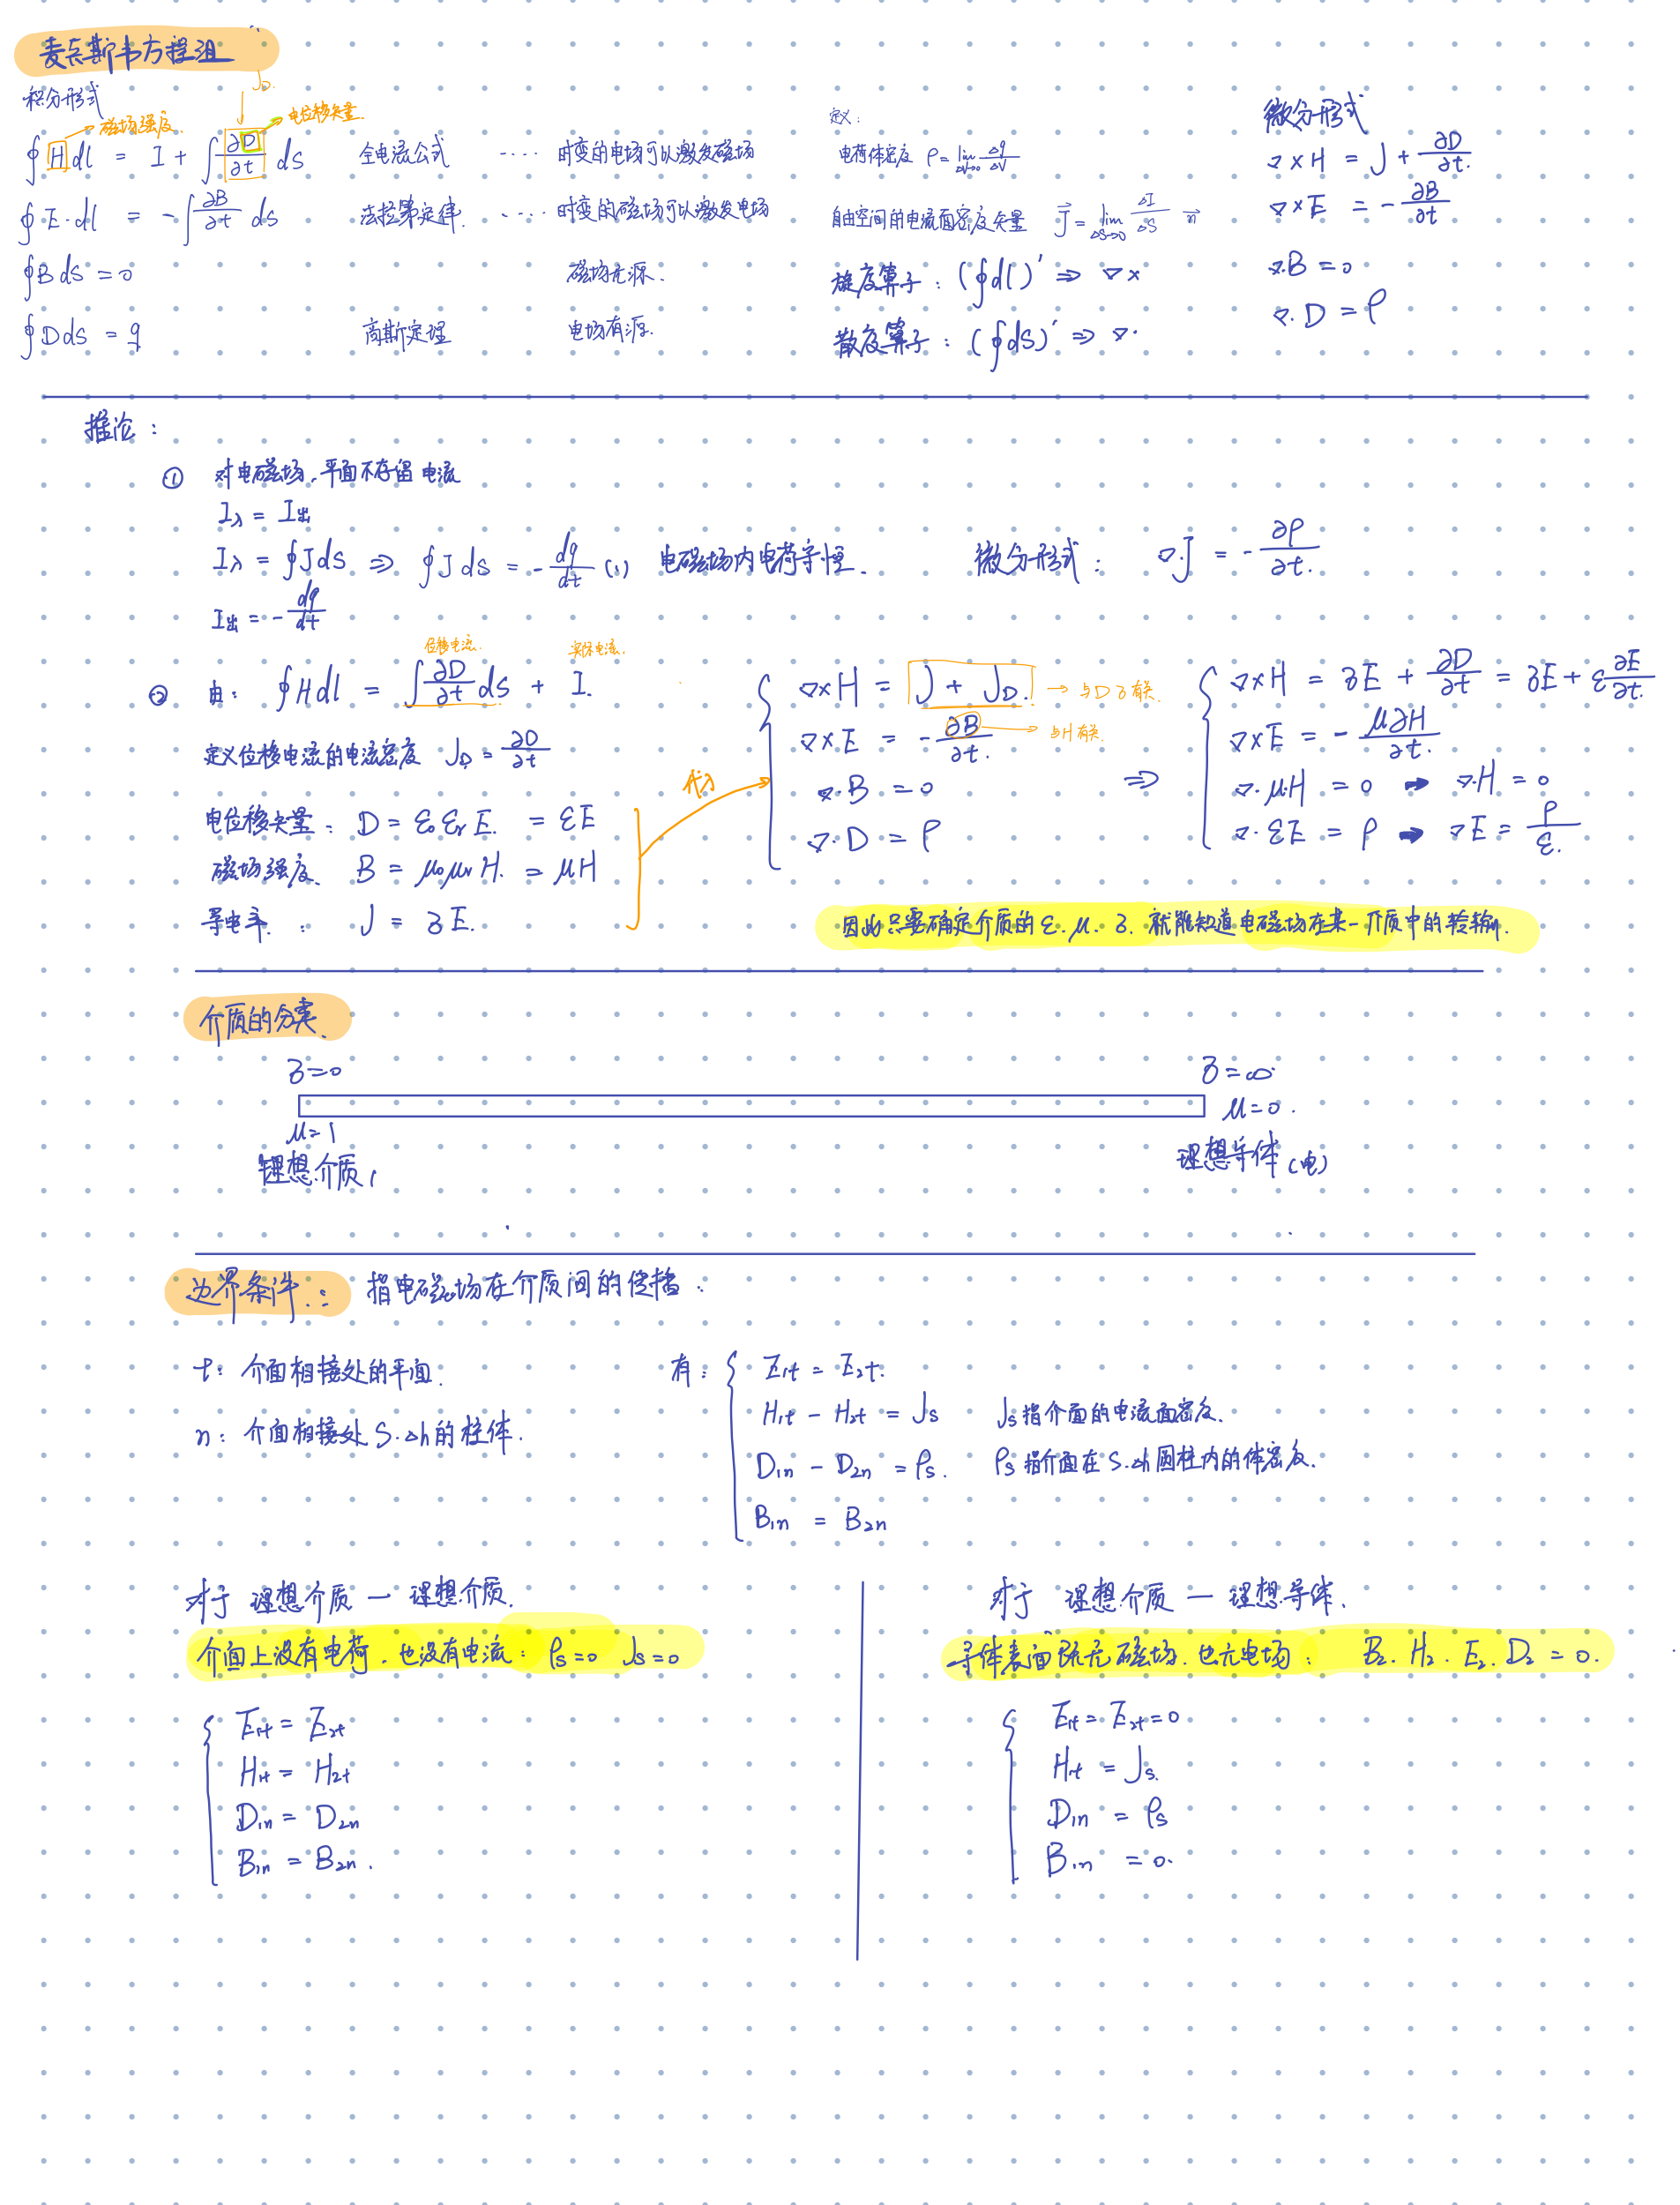 麦克斯韦方程组
积分形式
J_D.
磁场强度.
电位移矢量.
∮ H dl = I + ∫ ∂D/∂t ds 全电流公式 ···· 时变的电场可以激发磁场
∮ E·dl = - ∫ ∂B/∂t ds 法拉第定律. ···· 时变的磁场可以激发电场
∮ B ds = 0 磁场无源.
∮ D ds = q 高斯定理 电场有源.
定义:
电荷体密度 ρ = lim ΔV→0 Δq/ΔV
自由空间的电流面密度矢量 J⃗ = lim ΔS→0 ΔI/ΔS n⃗
旋度算子: (∮dl)′ ⇒ ∇×
散度算子: (∮ds)′ ⇒ ∇·
微分形式
∇×H = J + ∂D/∂t.
∇×E = - ∂B/∂t
∇·B = 0
∇·D = ρ
推论:
① 对电磁场,平面不存留电流
I入 = I出
I入 = ∮J ds ⇒ ∮J ds = - dq/dt (1) 电磁场内电荷守恒. 微分形式: ∇·J = - ∂ρ/∂t.
I出 = - dq/dt
位移电流. 实际电流.
② 由: ∮H dl = ∫ ∂D/∂t ds + I.
定义位移电流的电流密度 J_D = ∂D/∂t
电位移矢量: D = ε₀ εr E. = εE
磁场强度. B = μ₀ μr H. = μH
导电率.: J = δE.
代入
∇×H = J + J_D. → 与D δ有关.
∇×E = - ∂B/∂t. → 与H有关.
∇·B = 0
∇·D = ρ
⇒
∇×H = δE + ∂D/∂t = δE + ε ∂E/∂t.
∇×E = - μ∂H/∂t.
∇·μH = 0 ➡ ∇·H = 0
∇·εE = ρ ➡ ∇E = ρ/ε.
因此只要确定介质的 ε. μ. δ. 就能知道电磁场在某一介质中的转输.
介质的分类.
δ=0 δ=∞
μ=1 μ=0.
理想介质 理想导体(电)
边界条件.: 指电磁场在介质间的传播.
t: 介面相接处的平面.
n: 介面相接处 S·Δh的柱体.
有: E₁t = E₂t.
H₁t - H₂t = Js Js指介面的电流面密度.
D₁n - D₂n = ρs. ρs指介面在S·Δh圆柱内的体密度.
B₁n = B₂n
对于 理想介质 — 理想介质.
介面上没有电荷.也没有电流: ρs=0 Js=0
E₁t = E₂t
H₁t = H₂t
D₁n = D₂n
B₁n = B₂n.
对于 理想介质 — 理想导体.
导体表面既无磁场.也无电场: B₂. H₂. E₂. D₂ = 0.
E₁t = E₂t = 0
H₁t = Js.
D₁n = ρs
B₁n = 0.